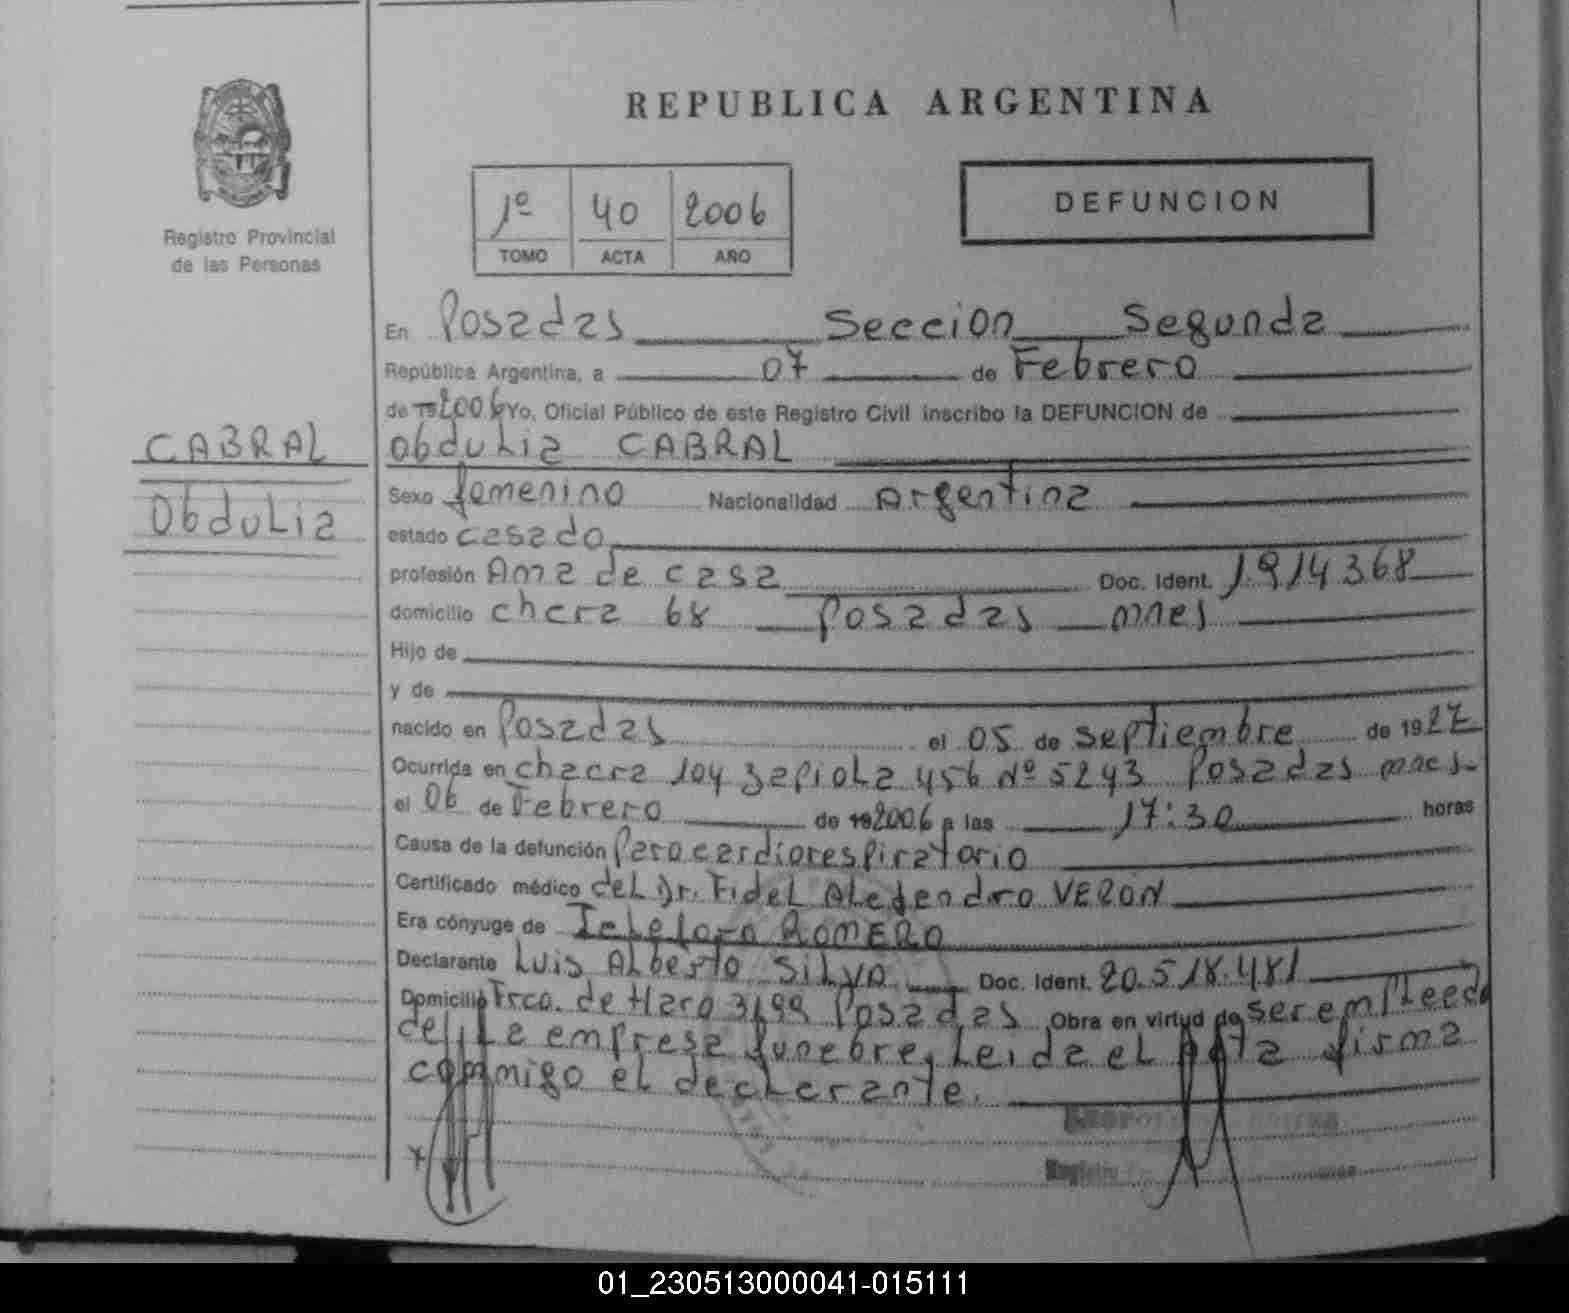 REPUBLICA ARGENTINA
1º 40 2006
TOMO ACTA AÑO
DEFUNCION
Registro Provincial
de las Personas
CABRAL
Obdulia
En Posadas Seccion Segunda
República Argentina, a 07 de Febrero
de 19 2006 Yo, Oficial Público de este Registro Civil inscribo la DEFUNCION de
Obdulia CABRAL
Sexo femenino Nacionalidad Argentina
estado casado
profesión Ama de casa Doc. Ident. 1.914368
domicilio chcra 68 Posadas mnes
Hijo de
y de
nacido en Posadas el 05 de septiembre de 1927
Ocurrida en chacra 104 zapiola 456 Nº 5243 Posadas mnes.
el 06 de Febrero de 19 2006 a las 17:30 horas
Causa de la defunción Paro cardiorespiratorio
Certificado médico del Dr. Fidel Alejandro VERON
Era cónyuge de ROMERO
Declarante Luis Alberto SILVA Doc. Ident. 20.518.481
Domicilio Frco. de Haro 3199 Posadas Obra en virtud de ser empleado
de la empresa funebre, Leida el Acta firma
conmigo el declarante.
Registro
01_230513000041-015111